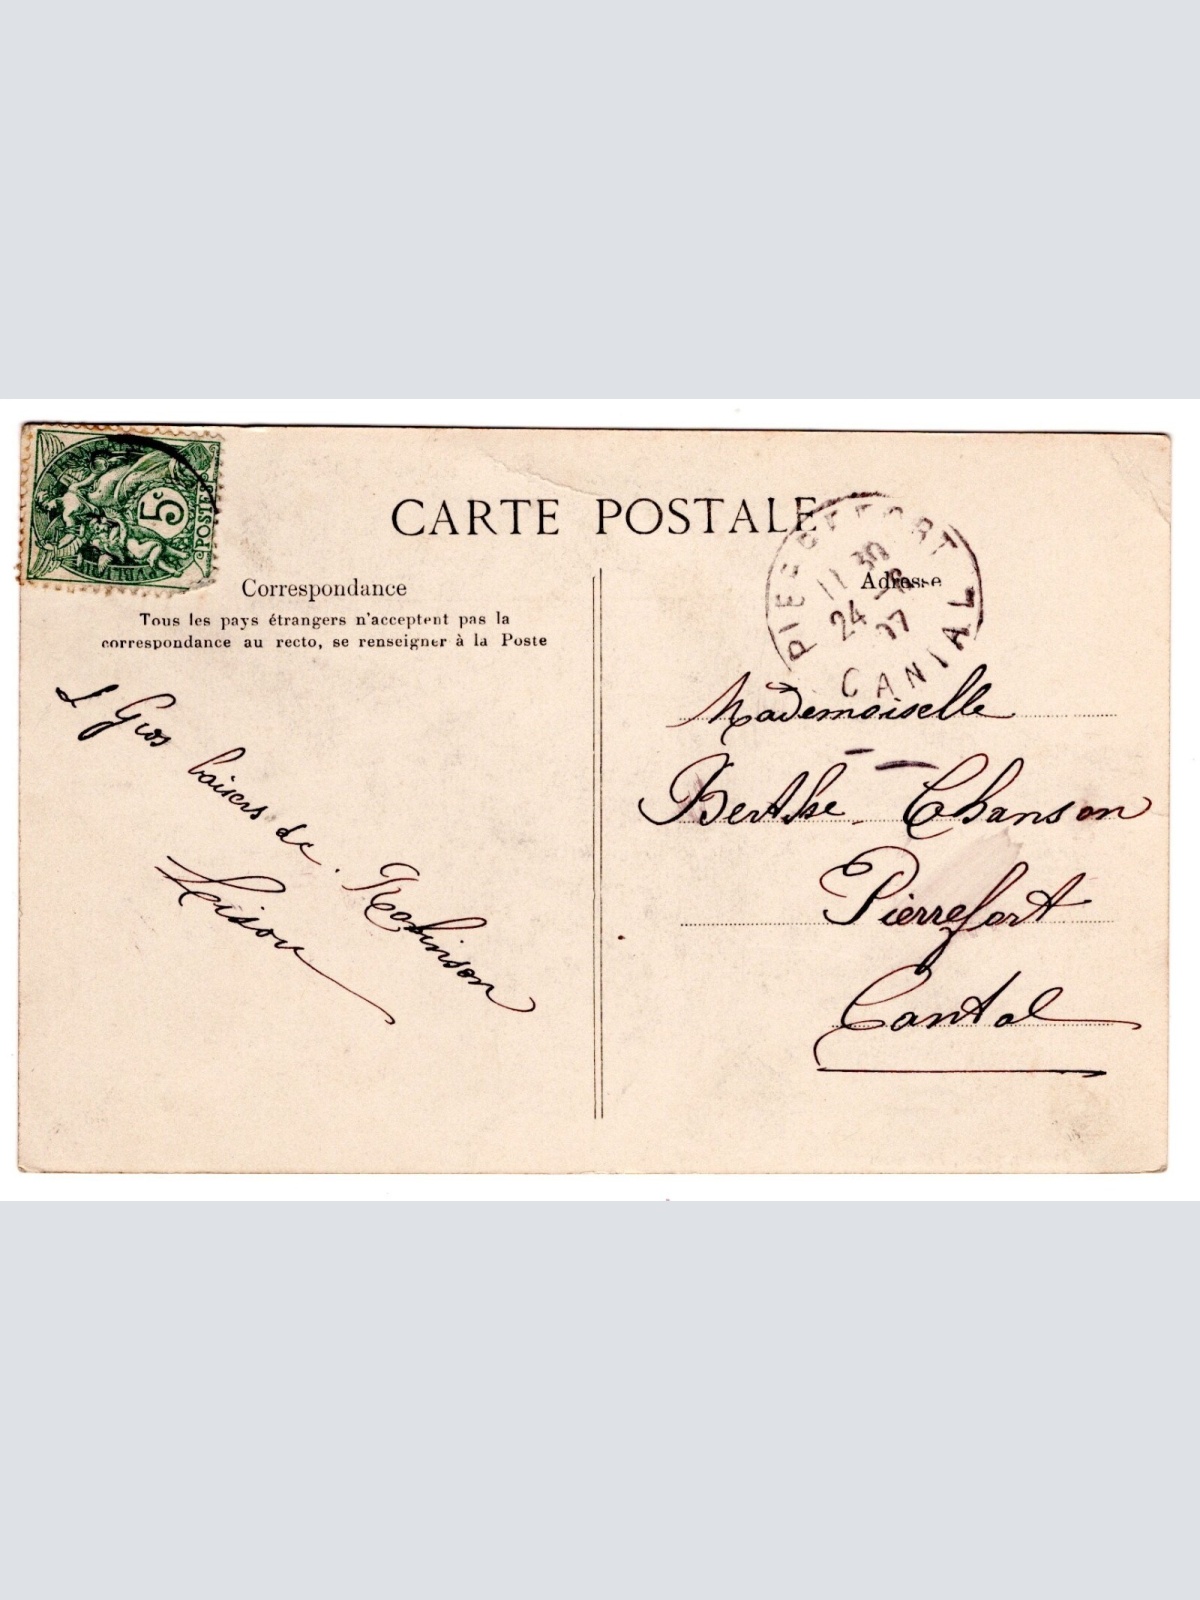 RÉPUBLIQUE FRANÇAISE
5c
POSTES
CARTE POSTALE
PIERREFORT
11 30
24 -6
07
CANTAL
Correspondance
Tous les pays étrangers n'acceptent pas la
correspondance au recto, se renseigner à la Poste
Adresse
Gros baisers de Robinson
Mademoiselle
Berthe Chanson
Pierrefort
Cantal